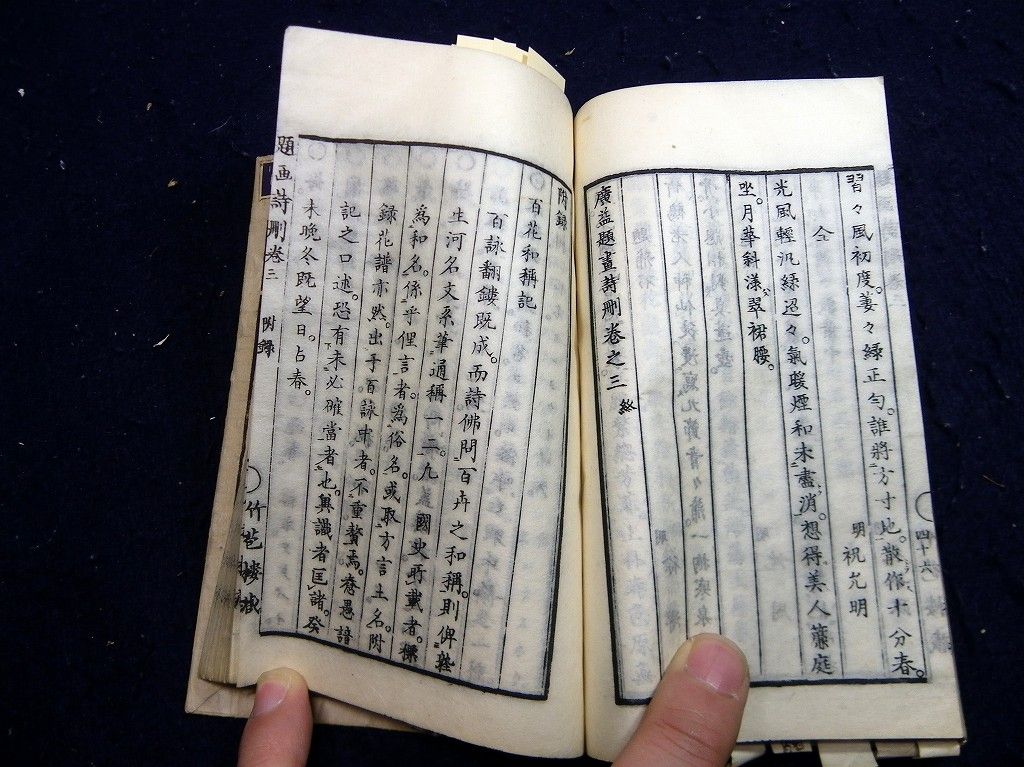 習々風初度。萋々緑正勻。誰將方寸地。散作十分春。
仝
明祝允明
光風輕汎緑迢々。氣暖煙和未盡消。想得美人簾庭
坐。月華斜漾翠裙腰。
廣益題畫詩刪卷之三終
四十六
附録
百花和稱記
百詠翻鏤既成。而詩佛問百卉之和稱。則俾
生河名文系筆通稱一二。九國史所載者。標
爲和名。係乎俚言者。爲俗名。或取方言土名。附
録花譜亦然。出于百詠中者。不重贅焉。愚諳
記之口述。恐有未必確當者也。與識者匡諸。癸
未晩冬既望日。占春。
題画詩刪卷三
附録
竹苞樓藏